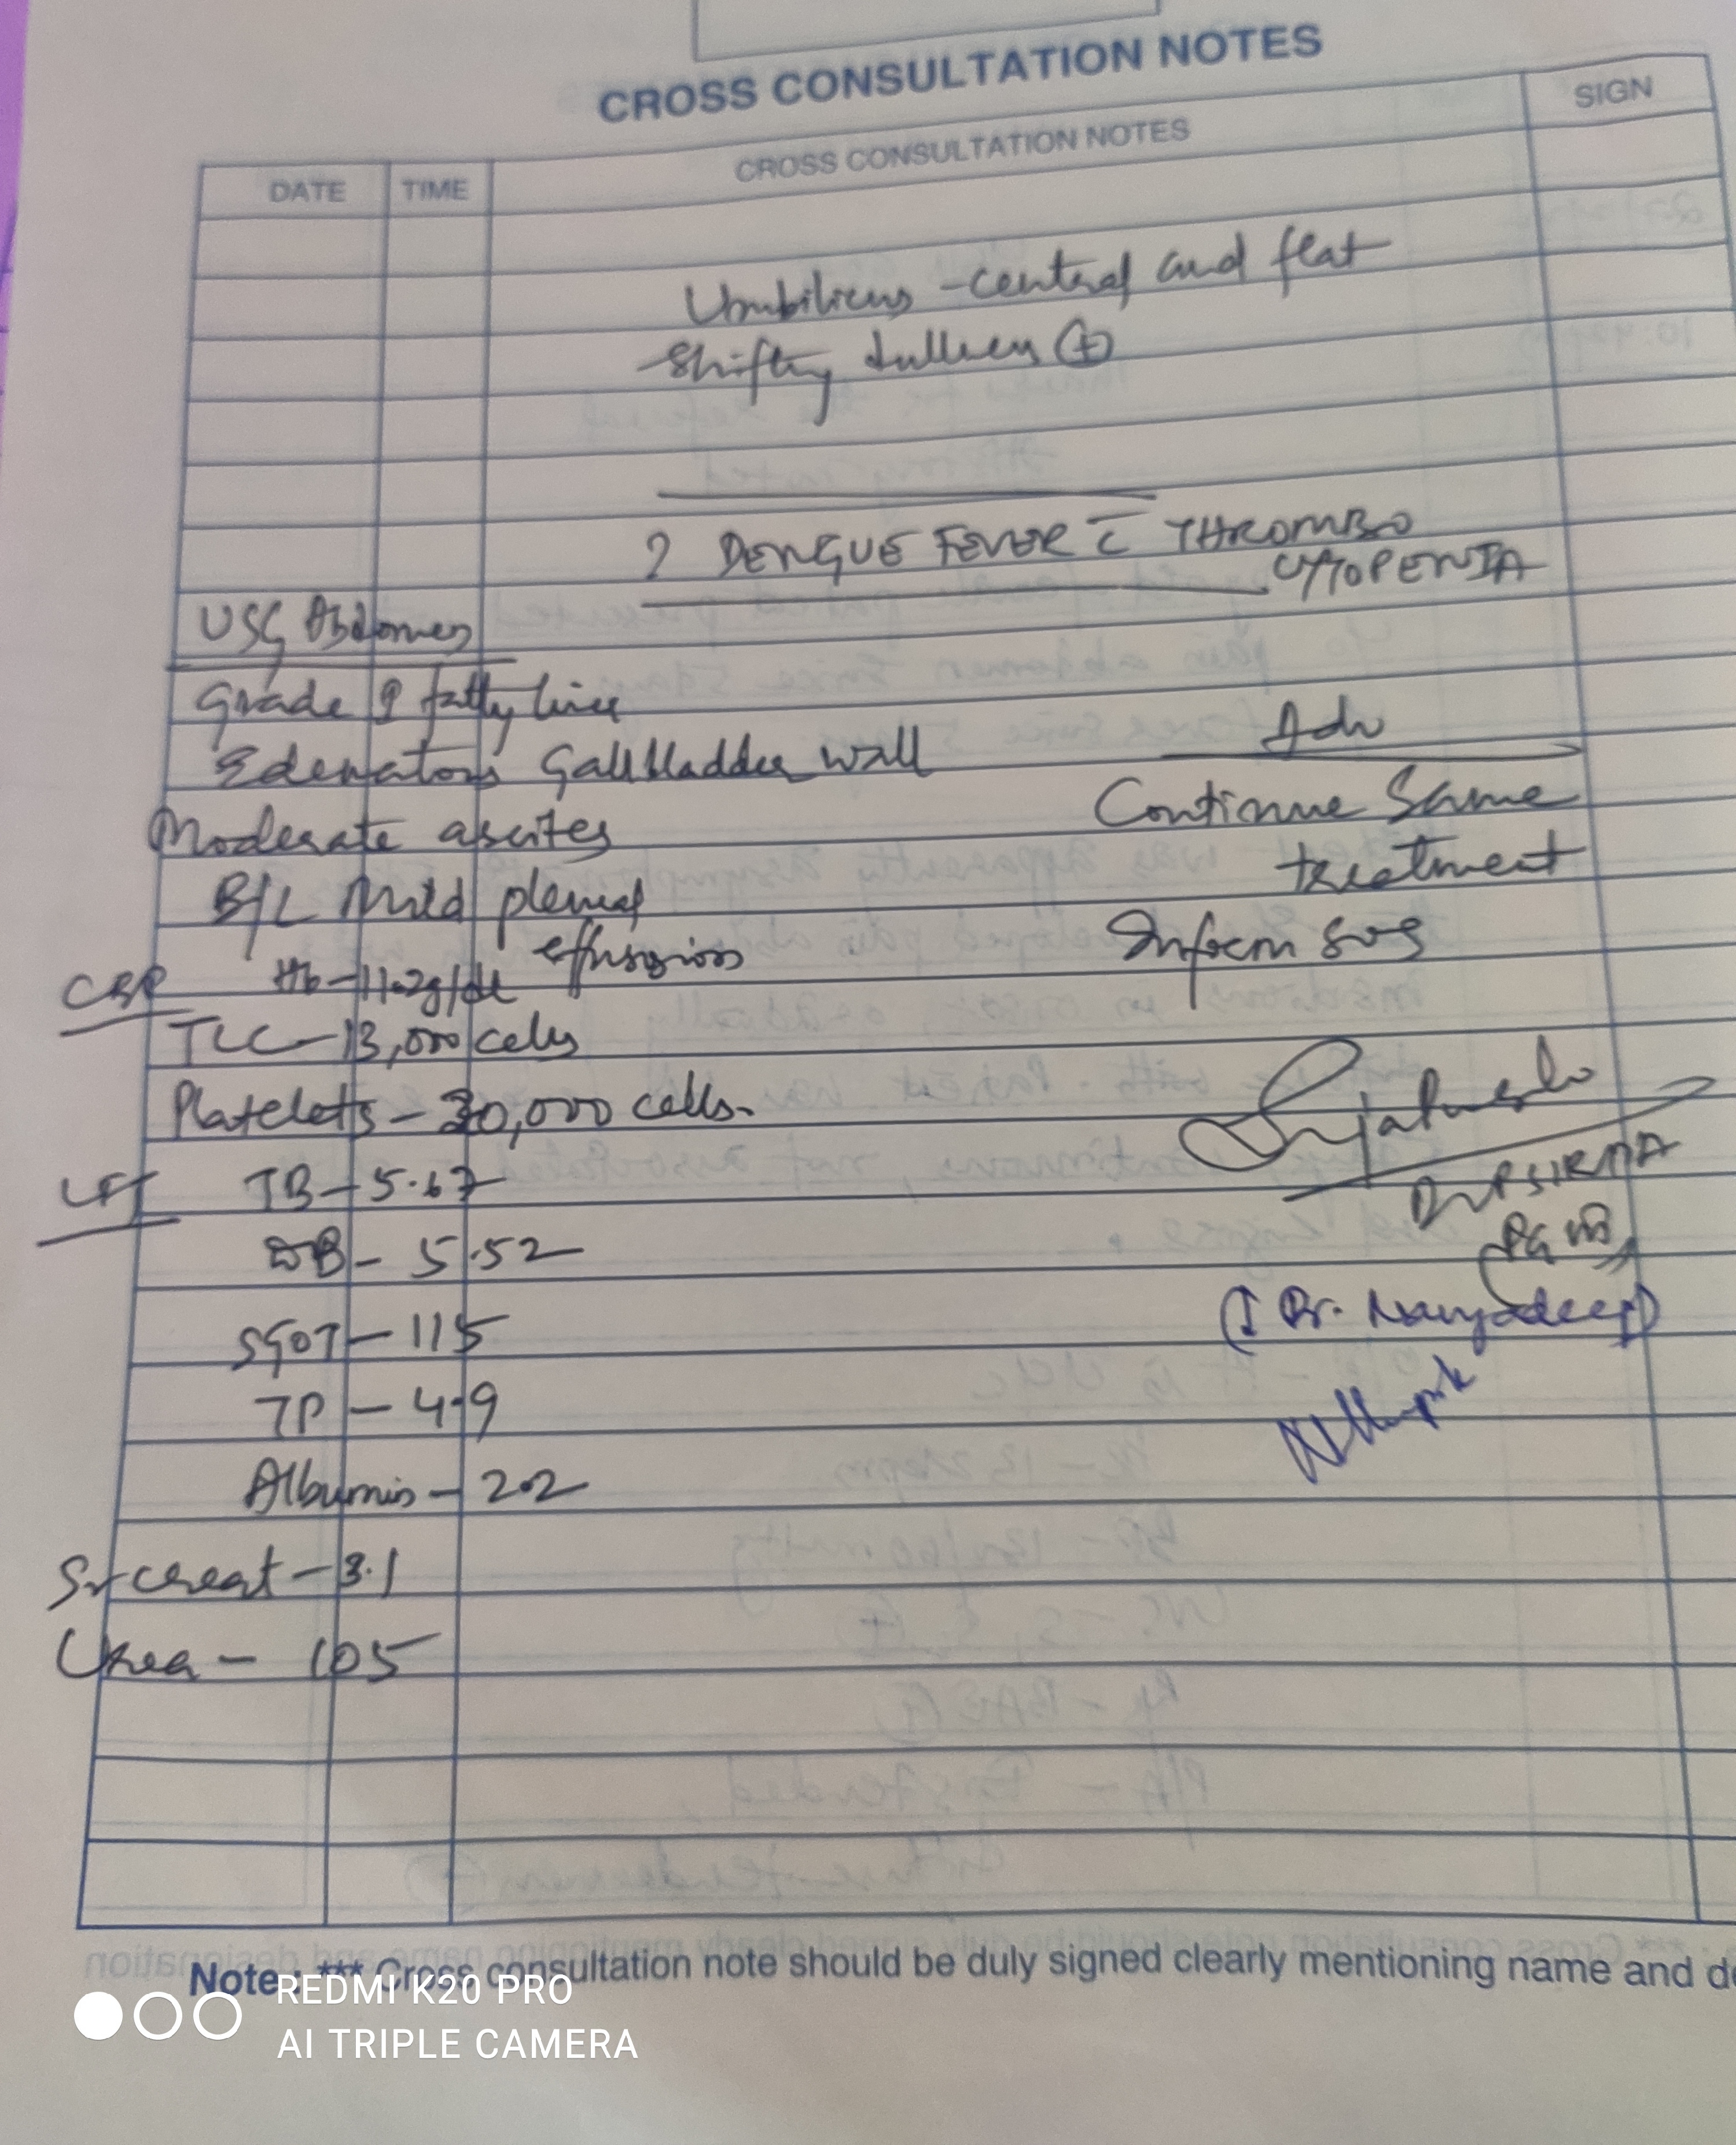 CROSS CONSULTATION NOTES
DATE TIME CROSS CONSULTATION NOTES SIGN
Umbilicus - central and flat
Shifting dullness (+)
? DENGUE FEVER c̄ THROMBO
CYTOPENIA
USG Abdomen
Grade I fatty liver
Edematous Gallbladder wall
Moderate ascites
B/L Mild pleural
effusion
CBP Hb - 11.2g/dl
TLC - 13,000 cells
Platelets - 30,000 cells.
LFT TB - 5.67
DB - 5.52
SGOT - 115
TP - 4.9
Albumin - 2.2
Sr creat - 3.1
Urea - 105
Adv
Continue Same
treatment
Inform SOS
PG
Dr. Navyadeep
Note : *** Cross consultation note should be duly signed clearly mentioning name and de
REDMI K20 PRO
AI TRIPLE CAMERA